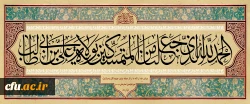 الحمد لله الذی جعلنا من المتمسکین بولایة علی بن ابی طالب
cfu.ac.ir